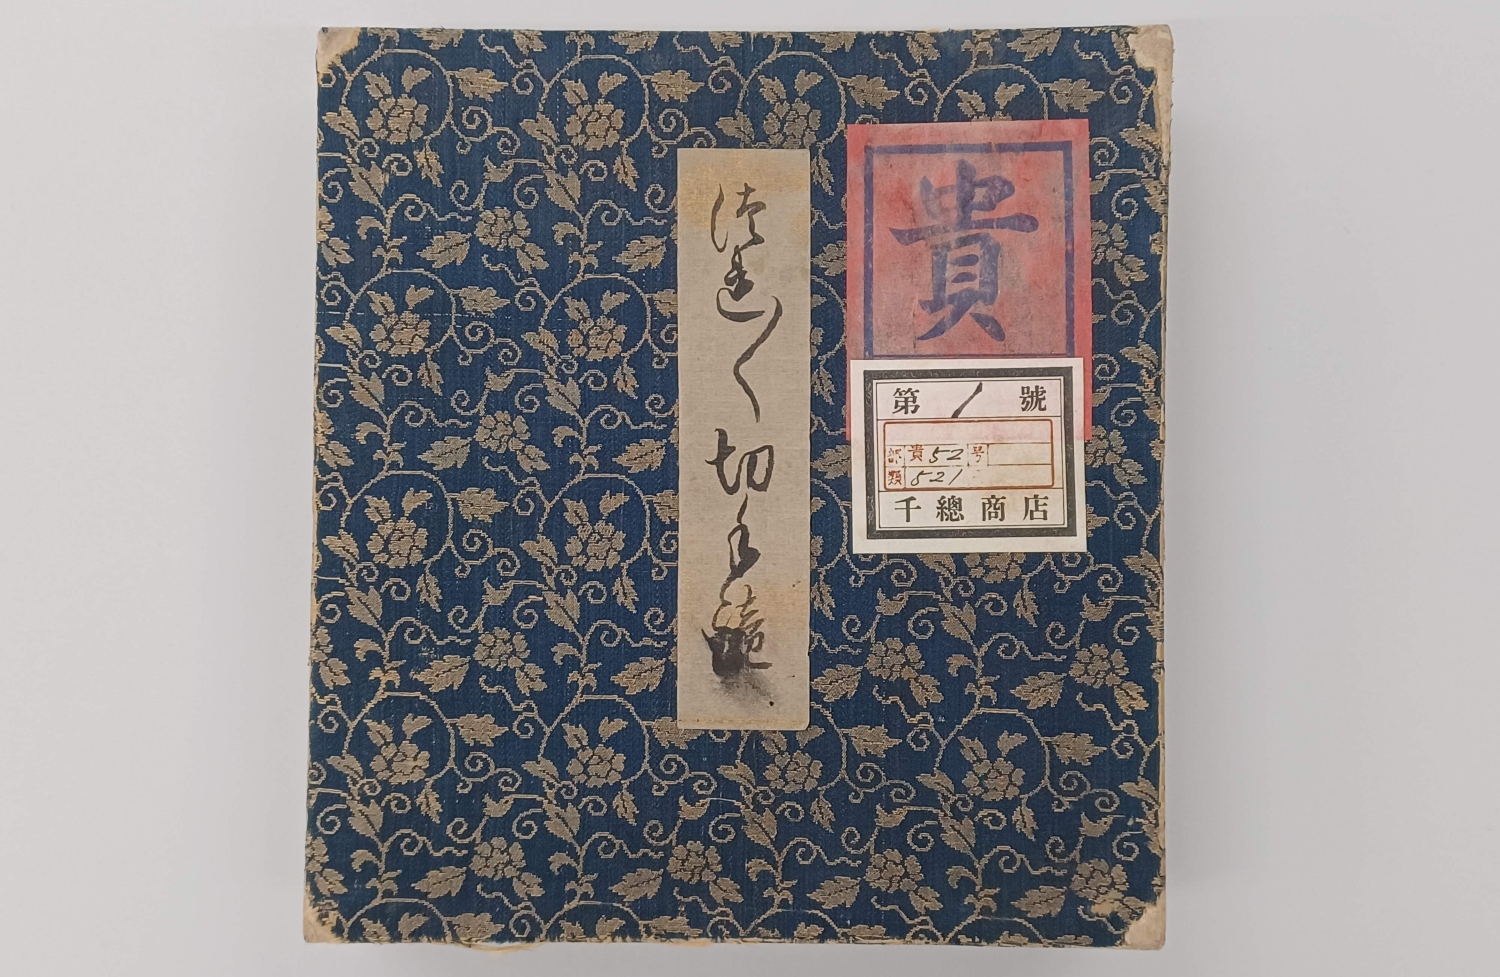 切手鏡
貴
第 1 號
部 貴52 号
類 521
千總商店